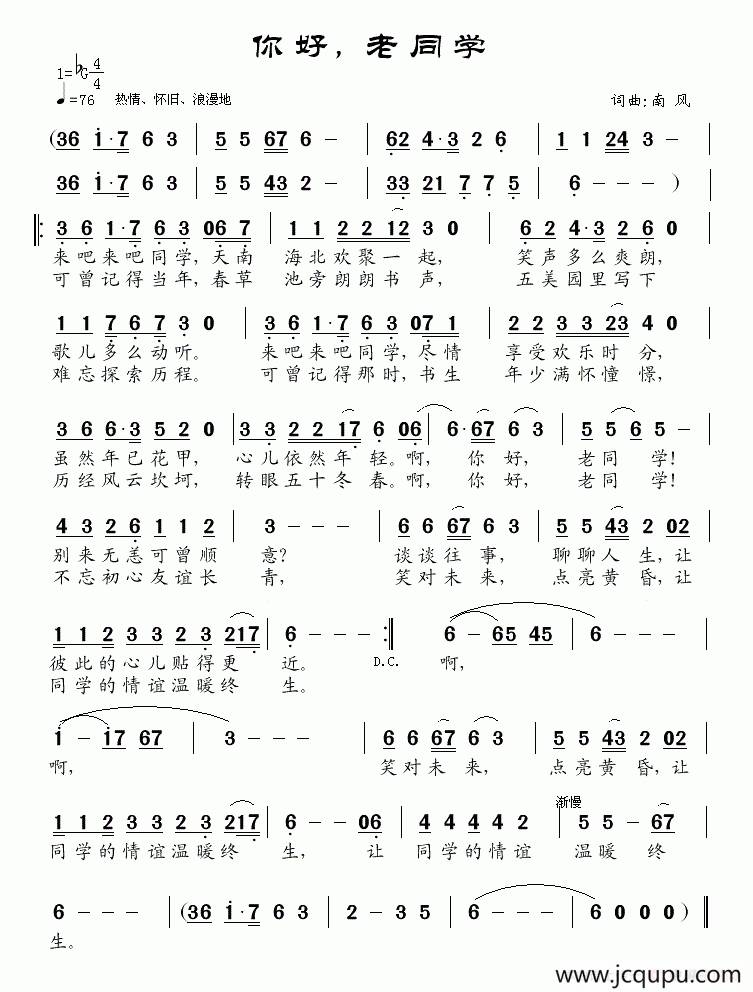 你好，老同学
1=♭G 4/4
♩=76 热情、怀旧、浪漫地 词曲:南风
(36 i·7 6 3 | 5 5 67 6 - | 62 4·3 2 6 | 1 1 24 3 - |
36 i·7 6 3 | 5 5 43 2 - | 33 21 7 7 5 | 6 - - ) |
‖: 3 6 1·7 6 3 06 7 | 1 1 2 2 12 3 0 | 6 2 4·3 2 6 0 |
来吧来吧同学,天南 海北欢聚一起, 笑声多么爽朗,
可曾记得当年,春草 池旁朗朗书声, 五美园里写下
1 1 7 6 7 3 0 | 3 6 1·7 6 3 07 1 | 2 2 3 3 23 4 0 |
歌儿多么动听。 来吧来吧同学,尽情 享受欢乐时分,
难忘探索历程。 可曾记得那时,书生 年少满怀憧憬,
3 6 6·3 5 2 0 | 3 3 2 2 17 6 06 | 6·67 6 3 | 5 5 6 5 - |
虽然年已花甲, 心儿依然年轻。啊, 你好, 老同学!
历经风云坎坷, 转眼五十冬春。啊, 你好, 老同学!
4 3 2 6 1 1 2 | 3 - - - | 6 6 67 6 3 | 5 5 43 2 02 |
别来无恙可曾顺 意? 谈谈往事, 聊聊人生,让
不忘初心友谊长 青, 笑对未来, 点亮黄昏,让
1 1 2 3 3 2 3 217 | 6 - - - :‖ 6 - 65 45 | 6 - - - |
彼此的心儿贴得更 近。 D.C. 啊,
同学的情谊温暖终 生。
i - i7 67 | 3 - - - | 6 6 67 6 3 | 5 5 43 2 02 |
啊, 笑对未来, 点亮黄昏,让
渐慢
1 1 2 3 3 2 3 217 | 6 - - 06 | 4 4 4 4 2 | 5 5 - 67 |
同学的情谊温暖终 生, 让 同学的情谊 温暖 终
6 - - - | (36 i·7 6 3 | 2 - 3 5 | 6 - - - | 6 0 0 0) |
生。
www.jcqupu.com